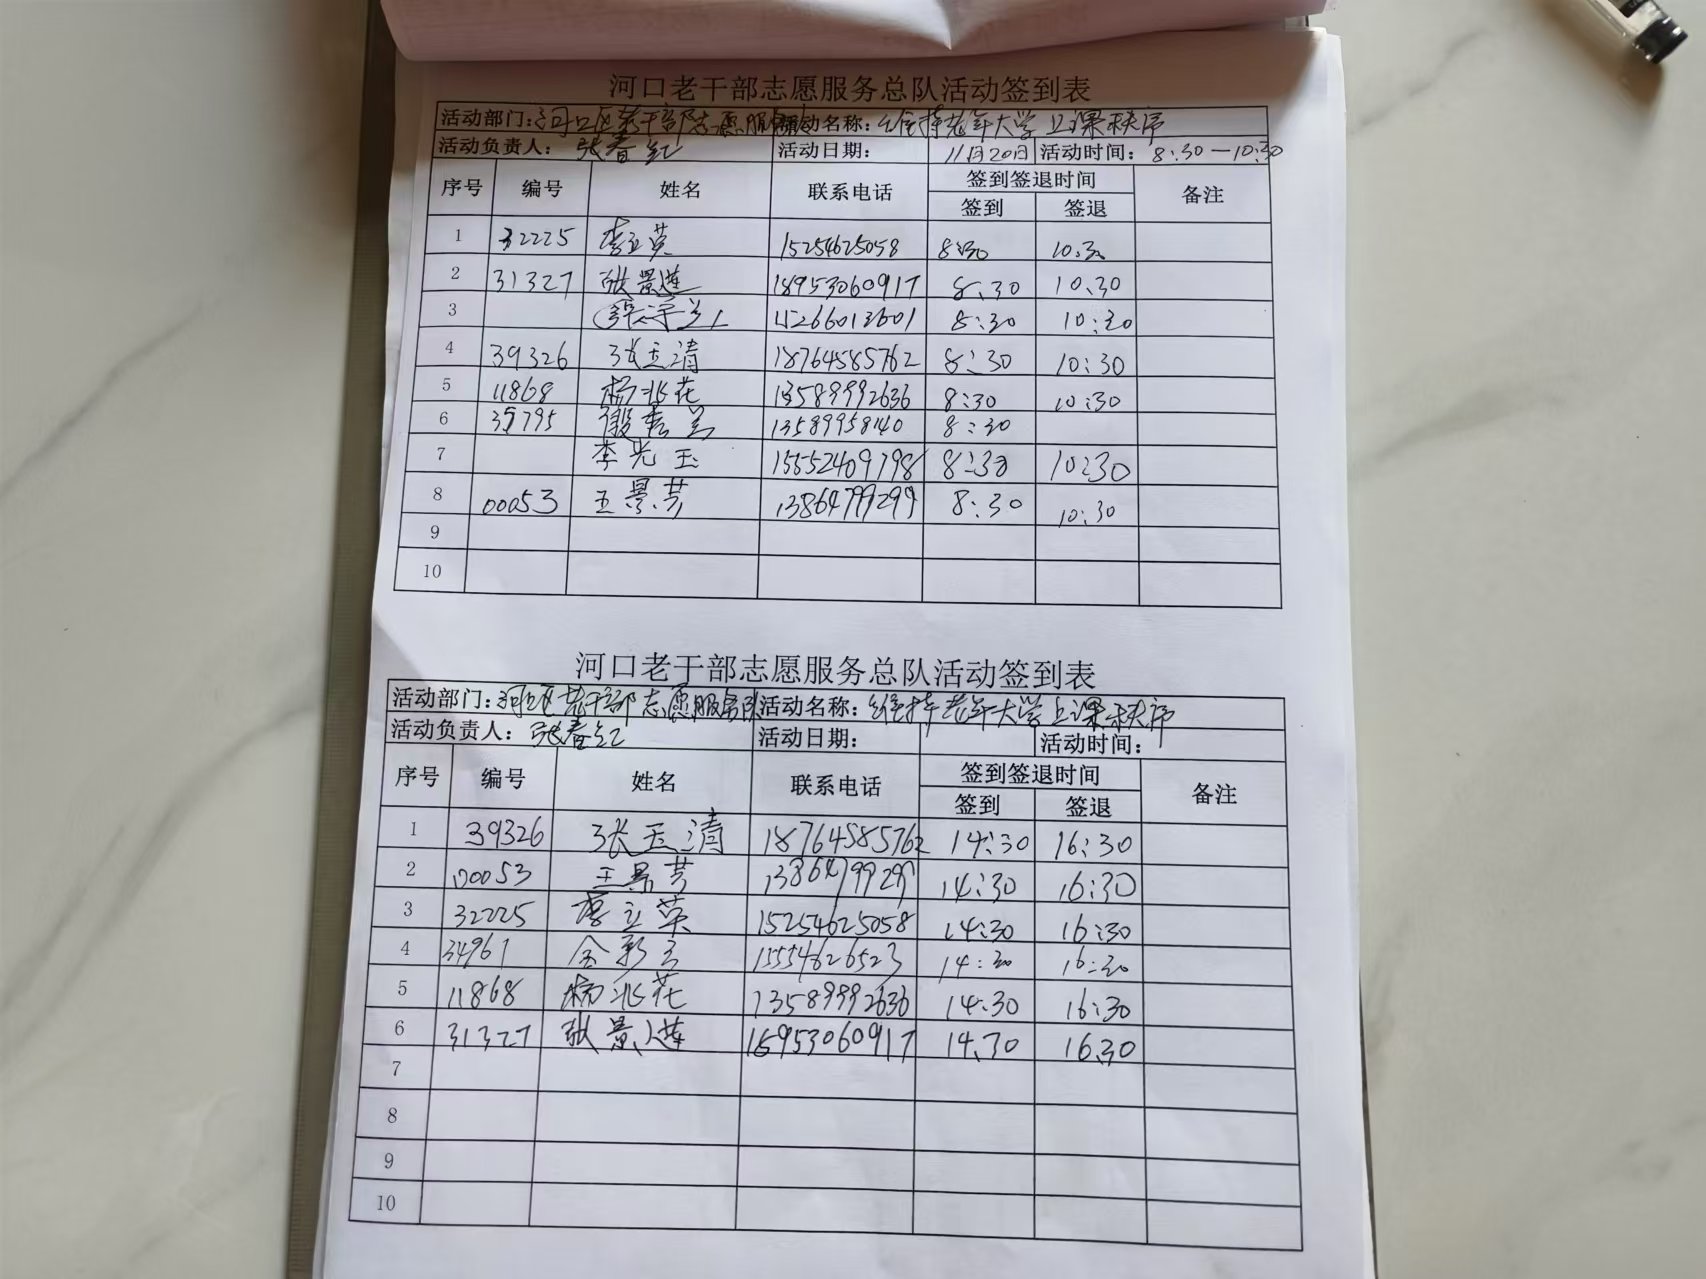 河口老干部志愿服务总队活动签到表
活动部门:河口区老干部志愿服务队 活动名称:维持老年大学上课秩序
活动负责人: 张春红 活动日期: 11月20日 活动时间: 8:30—10:30
序号 编号 姓名 联系电话 签到签退时间 备注
签到 签退
1 32225 李立英 15254625058 8:30 10.30
2 31327 张景莲 18953060917 8.30 10.30
3 8:30 10:30
4 39326 张玉清 18764585762 8:30 10:30
5 11868 杨兆花 13589992636 8:30 10:30
6 13589958140 8:30
7 李光玉 15552409798 8:30 10:30
8 00053 王景芳 13864799299 8:30 10:30
9
10
河口老干部志愿服务总队活动签到表
活动部门:河口区老干部志愿服务队 活动名称:维持老年大学上课秩序
活动负责人: 张春红 活动日期: 活动时间:
序号 编号 姓名 联系电话 签到签退时间 备注
签到 签退
1 39326 张玉清 18764585762 14:30 16:30
2 00053 王景芳 13864799299 14:30 16:30
3 32225 李立英 15254625058 14:30 16:30
4 34961 15554626523 14:30 16:30
5 11868 杨兆花 13589992636 14:30 16:30
6 31327 张景莲 18953060917 14.30 16.30
7
8
9
10